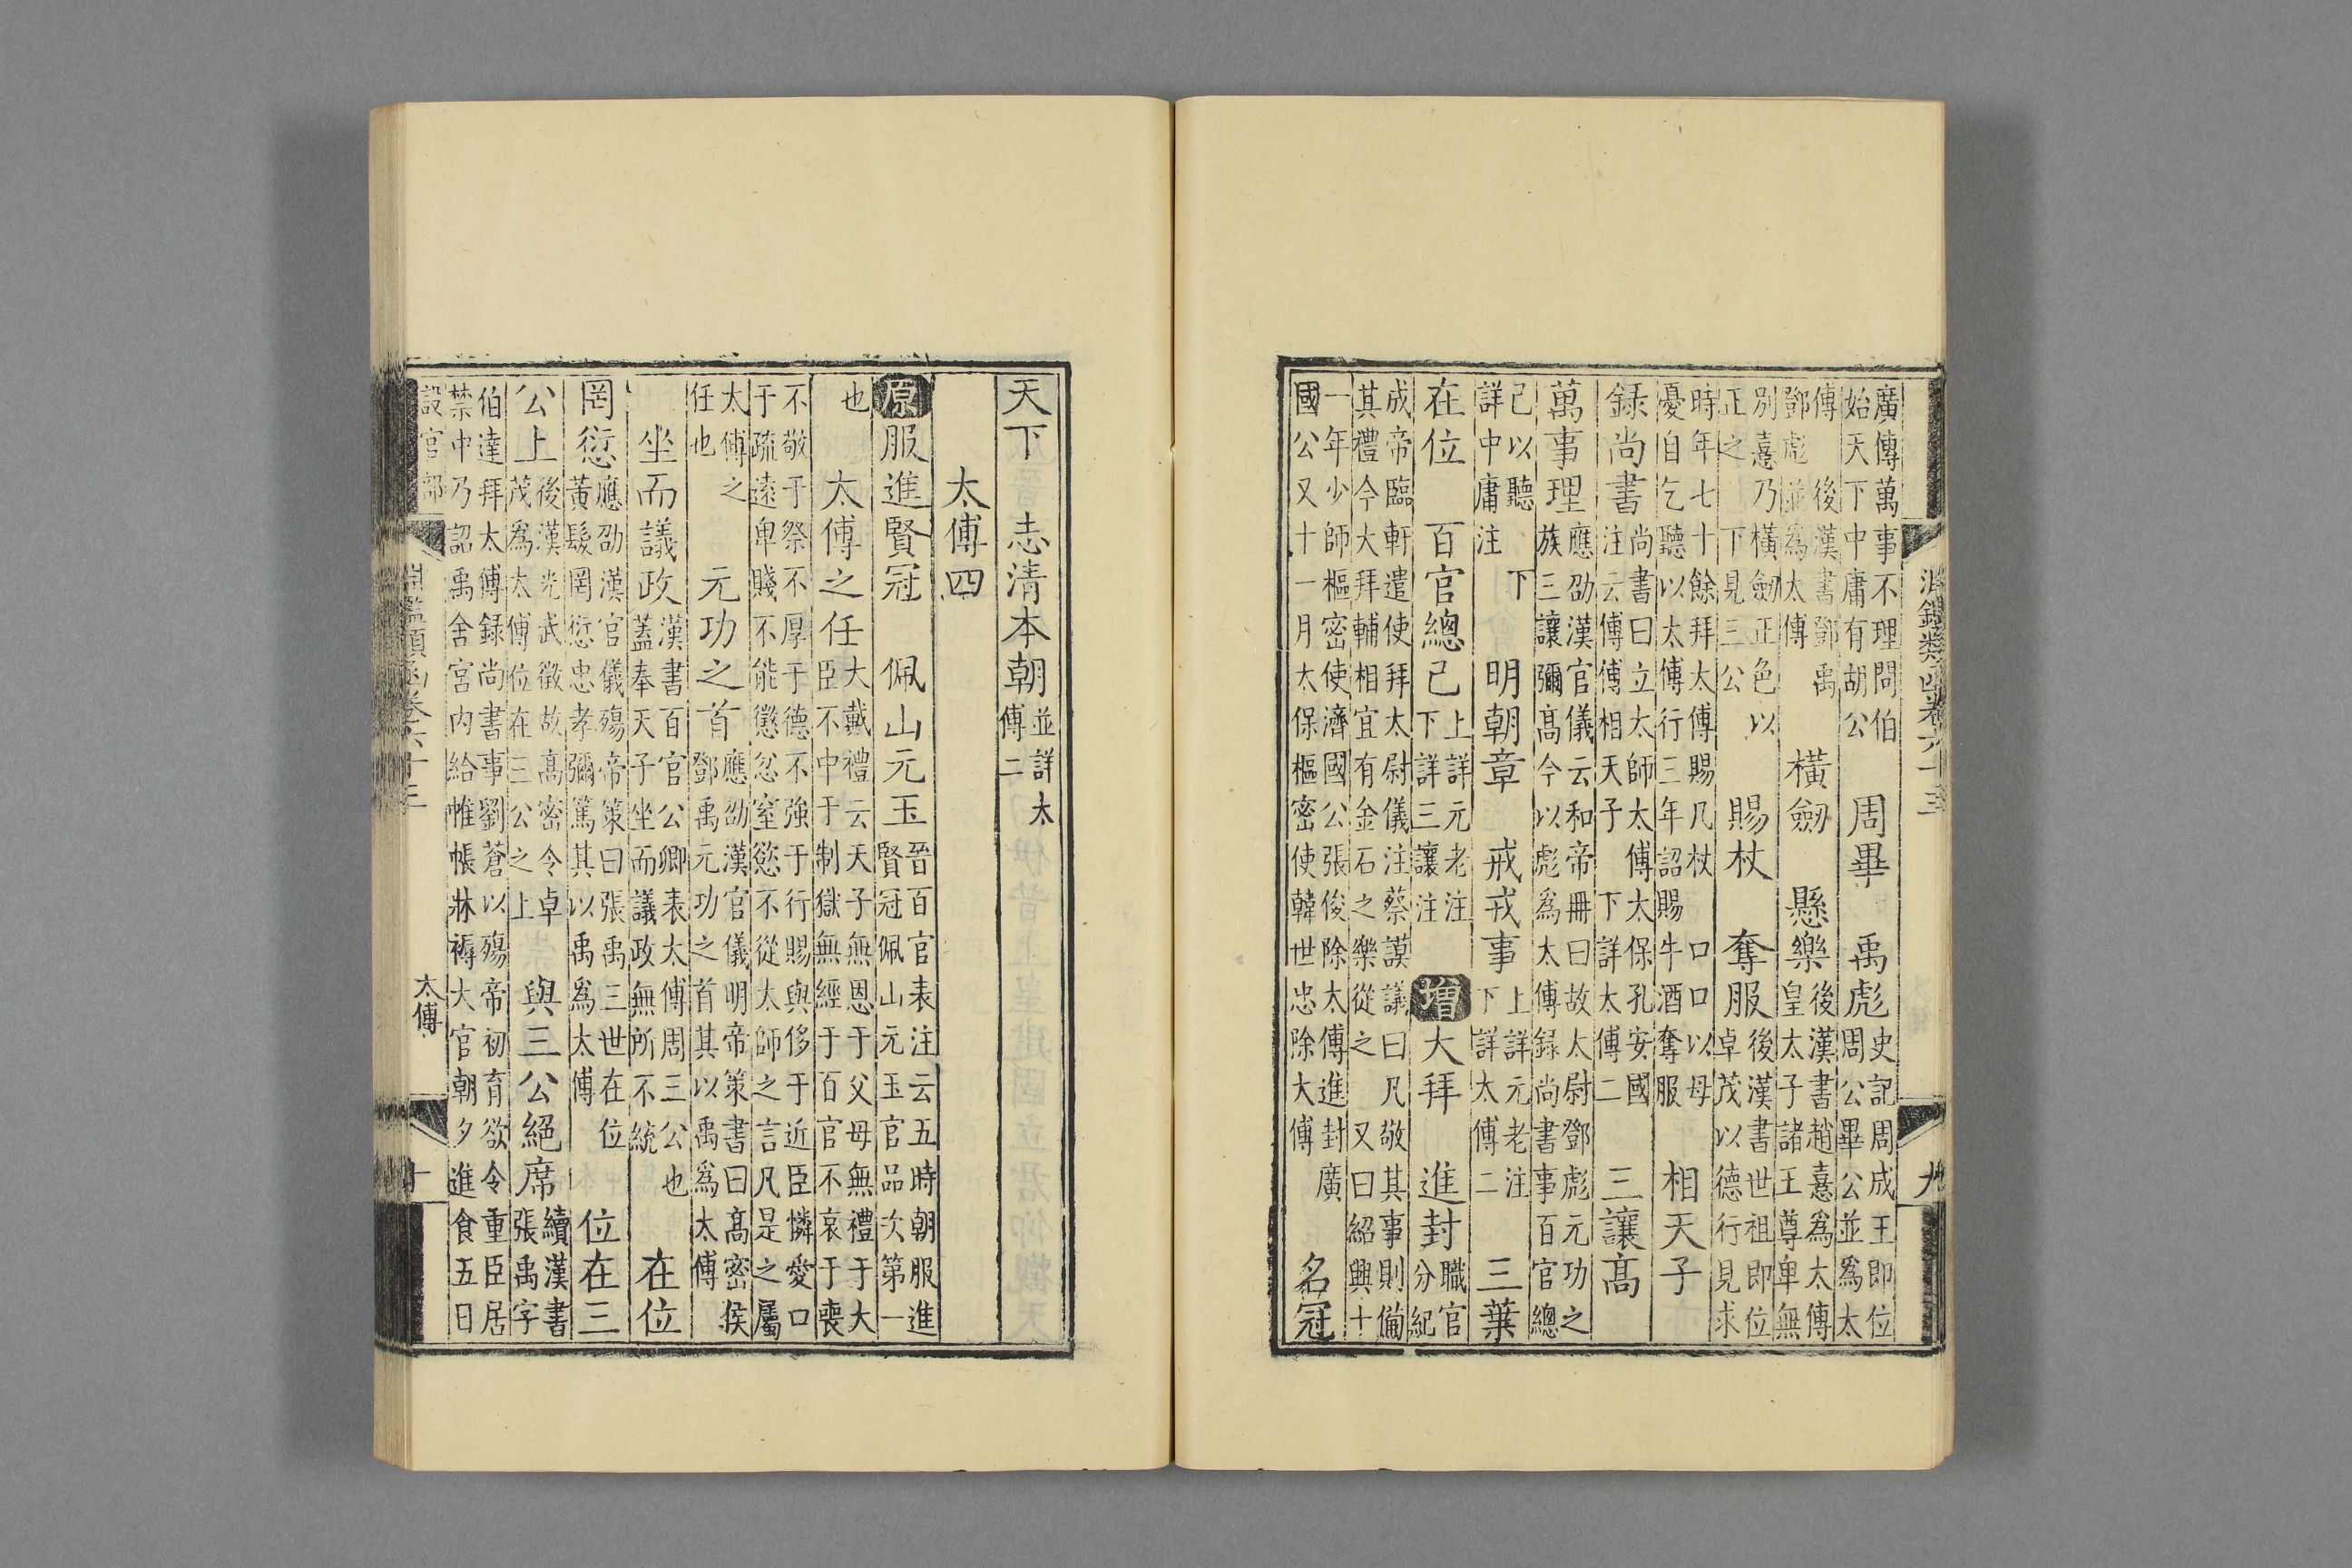 淵鑑類函卷六十三
九
廣傳萬事不理問伯
始天下中庸有胡公
周畢 禹彪
史記周成王即位
周公畢公並爲太
傅 後漢書鄧禹
鄧彪並爲太傅
橫劒 懸樂
後漢書趙憙爲太傅
皇太子諸王尊卑無
別憙乃橫劒正色以
正之 下見三公
賜杖 奪服
後漢書世祖即位
卓茂以德行見求
時年七十餘拜太傅賜几杖 口口以母
憂自乞聽以太傅行三年詔賜牛酒奪服
相天子
録尚書
尚書曰立太師太傅太保孔安國
注云傅傅相天子 下詳太傅二
三讓髙
萬事理
應劭漢官儀云和帝冊曰故太尉鄧彪元功之
族三讓彌髙今以彪爲太傅録尚書事百官總
己以聽 下
詳中庸注
明朝章 戒戎事
上詳元老注
下詳太傅二
三葉
在位 百官總己
上詳元老注
下詳三讓注
增 大拜 進封
職官
分紀
成帝臨軒遣使拜太尉儀注蔡謨議曰凡敬其事則備
其禮今大拜輔相宜有金石之樂從之 又曰紹興十
一年少師樞密使濟國公張俊除太傅進封廣
國公又十一月太保樞密使韓世忠除大傅
名冠
天下 志清本朝
並詳太
傅二
太傅四
原 服進賢冠 佩山元玉
晉百官表注云五時朝服進
賢冠佩山元玉官品次第一
也
太傅之任
大戴禮云天子無恩于父母無禮于大
臣不中于制獄無經于百官不哀于喪
不敬于祭不厚于德不強于行賜與侈于近臣憐愛口
于疏遠卑賤不能懲忿窒慾不從太師之言凡是之屬
太傅之
任也
元功之首
應劭漢官儀明帝策書曰髙密侯
鄧禹元功之首其以禹爲太傅
坐而議政
漢書百官公卿表太傅周三公也
蓋奉天子坐而議政無所不統
在位
罔愆
應劭漢官儀殤帝策曰張禹三世在位
黃髮罔愆忠孝彌篤其以禹爲太傅
位在三
公上
後漢光武徵故髙密令卓
茂爲太傅位在三公之上
與三公絕席
續漢書
張禹字
伯達拜太傅録尚書事劉蒼以殤帝初育欲令重臣居
禁中乃詔禹舍宮內給帷帳牀褥大官朝夕進食五日
淵鑑類函卷六十三
設官部
太傅
十